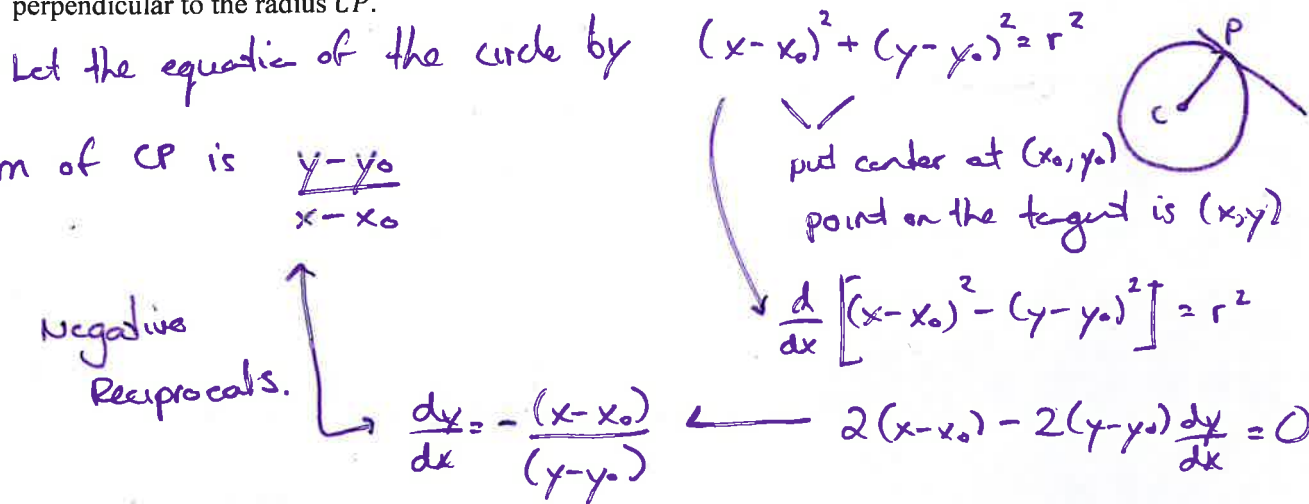 perpendicular to the radius CP.
Let the equation of the circle by (x-x₀)² + (y-y₀)² = r²
P
C
m of CP is (y-y₀)/(x-x₀)
put center at (x₀,y₀)
point on the tangent is (x,y)
Negative
Reciprocals.
d/dx [(x-x₀)² - (y-y₀)²] = r²
dy/dx = - (x-x₀)/(y-y₀)
2(x-x₀) - 2(y-y₀) dy/dx = 0